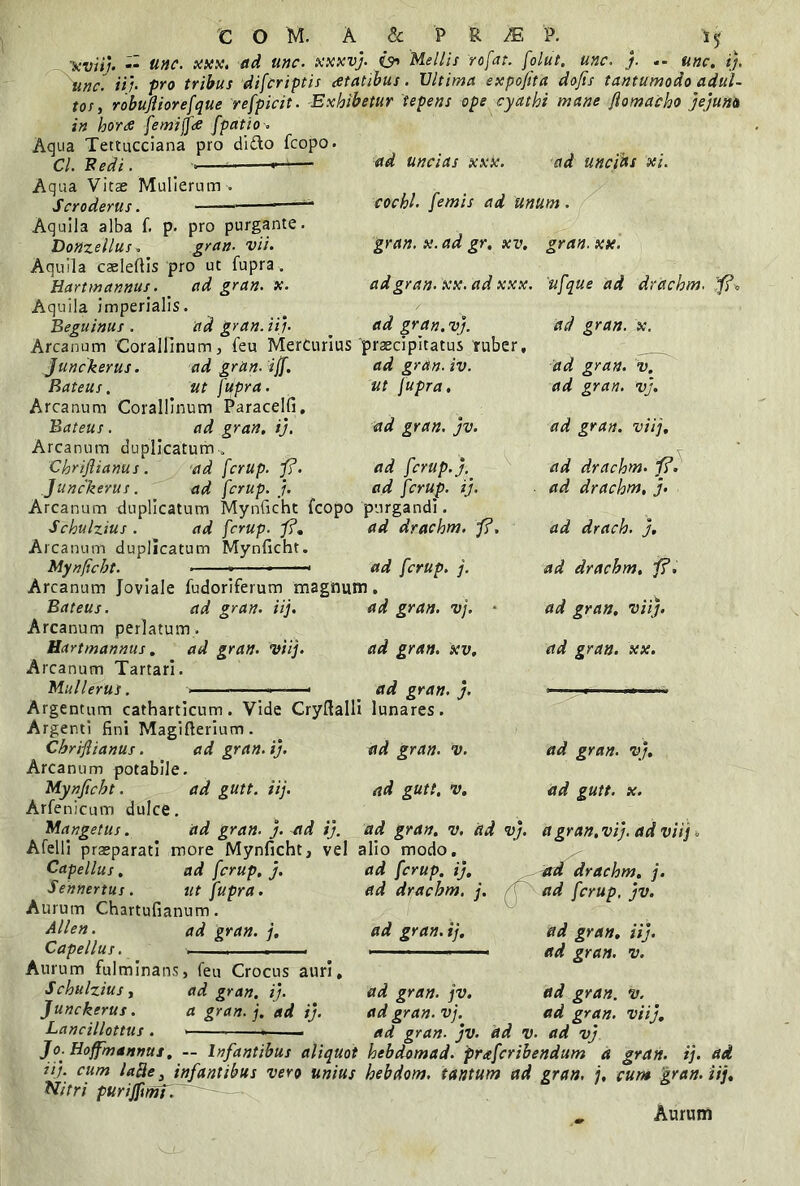 C O M. A & P R Æ P. 15
xviij. -- unc. xxx. ad unc. xxxvj. & Mellis rosat. solut. unc. j. -- unc. ij.
unc. iij. pro tribus discriptis ætatibus. Ultima exposita dosis tantumodo adul-
tos, robustioresque respicit. Exhibetur tepens ope cyathi mane stomacho jejuna
in horæ semissæ spatio.
Aqua Tettucciana pro dicto scopo.
Cl. Redi. ——— ad uncias xxx. ad uncias xl.
Aqua Vitæ Mulierum.
Scroderus. ——— cochl. semis ad unum.
Aquila alba s. p. pro purgante.
Donzellus. gran. vii. gran. x. ad gr. xv. gran. xx.
Aquila cælestis pro ut supra.
Hartmannus. ad gran. x. ad gran. xx. ad xxx. usque ad drachm. ß.
Aquila imperialis.
Beguinus. ad gran. iij. ad gran. vj. ad gran. x.
Arcanum Corallinum, seu Mercurius præcipitatus ruber.
Junckerus. ad gran. iss. ad gran. iv. ad gran. v.
Bateus. ut supra. ut supra. ad gran. vj.
Arcanum Corallinum Paracelsi.
Bateus. ad gran. ij. ad gran. jv. ad gran. viij.
Arcanum duplicatum.
Christianus. ad scrup. ß. ad scrup. j. ad drachm. ß.
Junckerus. ad scrup. j. ad scrup. ij. ad drachm. j.
Arcanum duplicatum Mynsicht scopo purgandi.
Schulzius. ad scrup. ß. ad drachm. ß. ad drach. j.
Arcanum duplicatum Mynsicht.
Mynsicht. ——— ad scrup. j. ad drachm. ß.
Arcanum Joviale sudoriferum magnum.
Bateus. ad gran. iij. ad gran. vj. ad gran. viij.
Arcanum perlatum.
Hartmannus. ad gran. viij. ad gran. xv. ad gran. xx.
Arcanum Tartari.
Mullerus. ——— ad gran. j. ———
Argentum catharticum. Vide Crystalli lunares.
Argenti fini Magisterium.
Christianus. ad gran. ij. ad gran. v. ad gran. vj.
Arcanum potabile.
Mynsicht. ad gutt. iij. ad gutt. v. ad gutt. x.
Arsenicum dulce.
Mangetus. ad gran. j. ad ij. ad gran. v. ad vj. a gran. vij. ad viij.
Aselli præparati more Mynsicht, vel alio modo.
Capellus. ad scrup. j. ad scrup. ij. ad drachm. j.
Sennertus. ut supra. ad drachm. j. ad scrup. jv.
Aurum Chartusianum.
Allen. ad gran. j. ad gran. ij. ad gran. iij.
Capellus. ——— ——— ad gran. v.
Aurum fulminans, seu Crocus auri.
Schulzius, ad gran. ij. ad gran. jv. ad gran. v.
Junckerus. a gran. j. ad ij. ad gran. vj. ad gran. viij.
Lancillottus. ——— ad gran. jv. ad v. ad vj
Jo. Hoffmannus. -- Infantibus aliquot hebdomad. præscribendum a gran. ij. ad
iij. cum lacte, infantibus vero unius hebdom. tantum ad gran. j. cum gran. iij.
Nitri purissimi.
Aurum